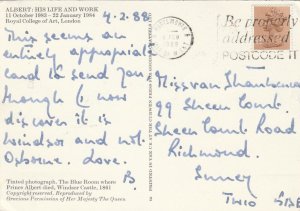 ALBERT: HIS LIFE AND WORK
11 October 1983 – 22 January 1984
Royal College of Art, London
4.2.86
This seems an
entirely appropriate
card to send you
though I now
discover it is
Windsor and not
Osborne. Love.
B.
Tinted photograph. The Blue Room where
Prince Albert died, Windsor Castle, 1861
Copyright Reserved. Reproduced by
Gracious Permission of Her Majesty The Queen
Be properly
addressed
POSTCODE IT
Miss van
99 Sheen Court
Sheen Court Road
Richmond.
Surrey
TW10